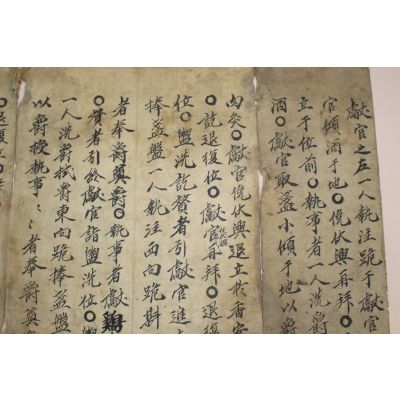 獻官之左一人執注跪于獻官
官傾酒于地○俛伏興再拜○
立于位前○執事者一人洗爵
酒○獻官取盞小傾于地以爵
肉灸○獻官俛伏興退立於香安
○訖退復位○獻官再拜○退復
位○盥洗訖贊者引獻官進
捧盆盤一人執注西向跪斟
者奉爵奠爵○執事者獻
○贊者引於獻官詣盥洗位○
一人洗爵拭爵東向跪捧盆盤
以爵授執事〻者奉爵奠
○退復立○